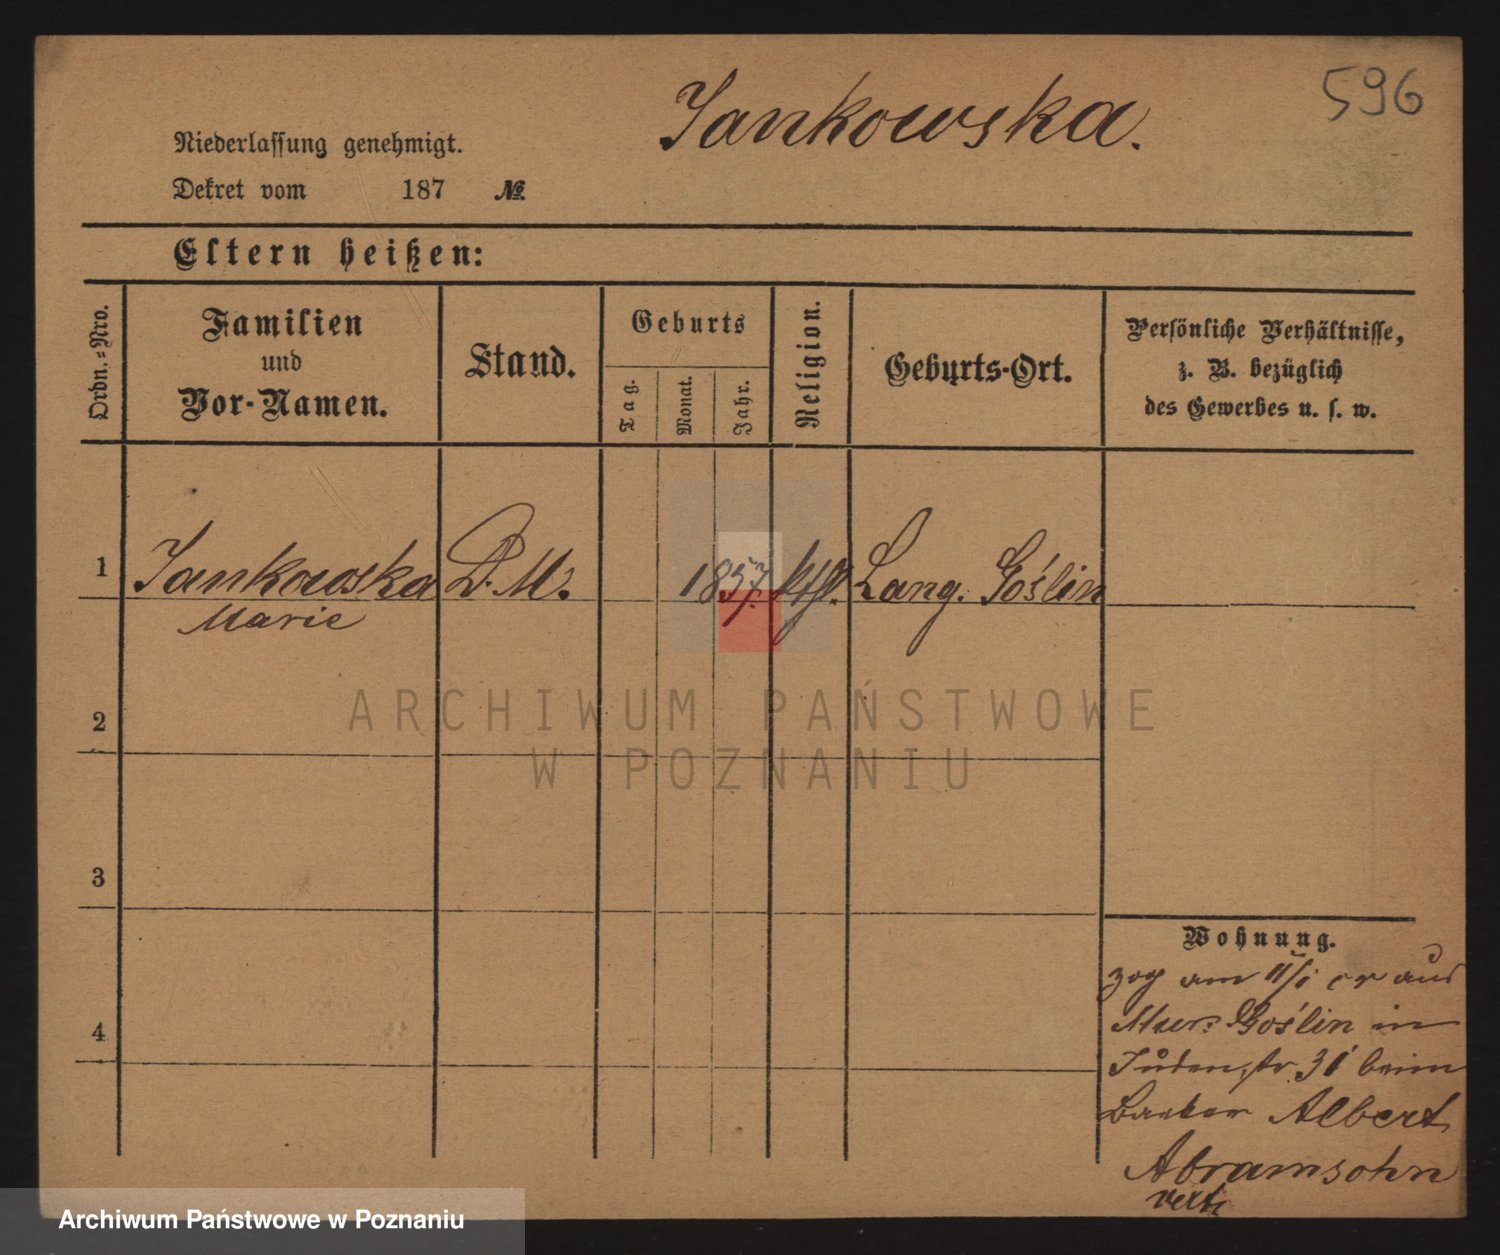 596
Jankowska.
Niederlassung genehmigt.
Dekret vom 187 №
Eltern heißen:
Ordn.=Nro.
Familien
und
Vor-Namen.
Stand.
Geburts
Tag.
Monat.
Jahr.
Religion.
Geburts-Ort.
Persönliche Verhältnisse,
z. B. bezüglich
des Gewerbes u. s. w.
1 Jankowska D. M. 1857. kth. Lang. Goślin
Marie
2
3
4
Wohnung.
zog am 11/1 cr aus
Mur. Goślin in
Judenstr. 31 beim
Baeker Albert
Abramsohn
verte
ARCHIWUM PAŃSTWOWE
W POZNANIU
Archiwum Państwowe w Poznaniu